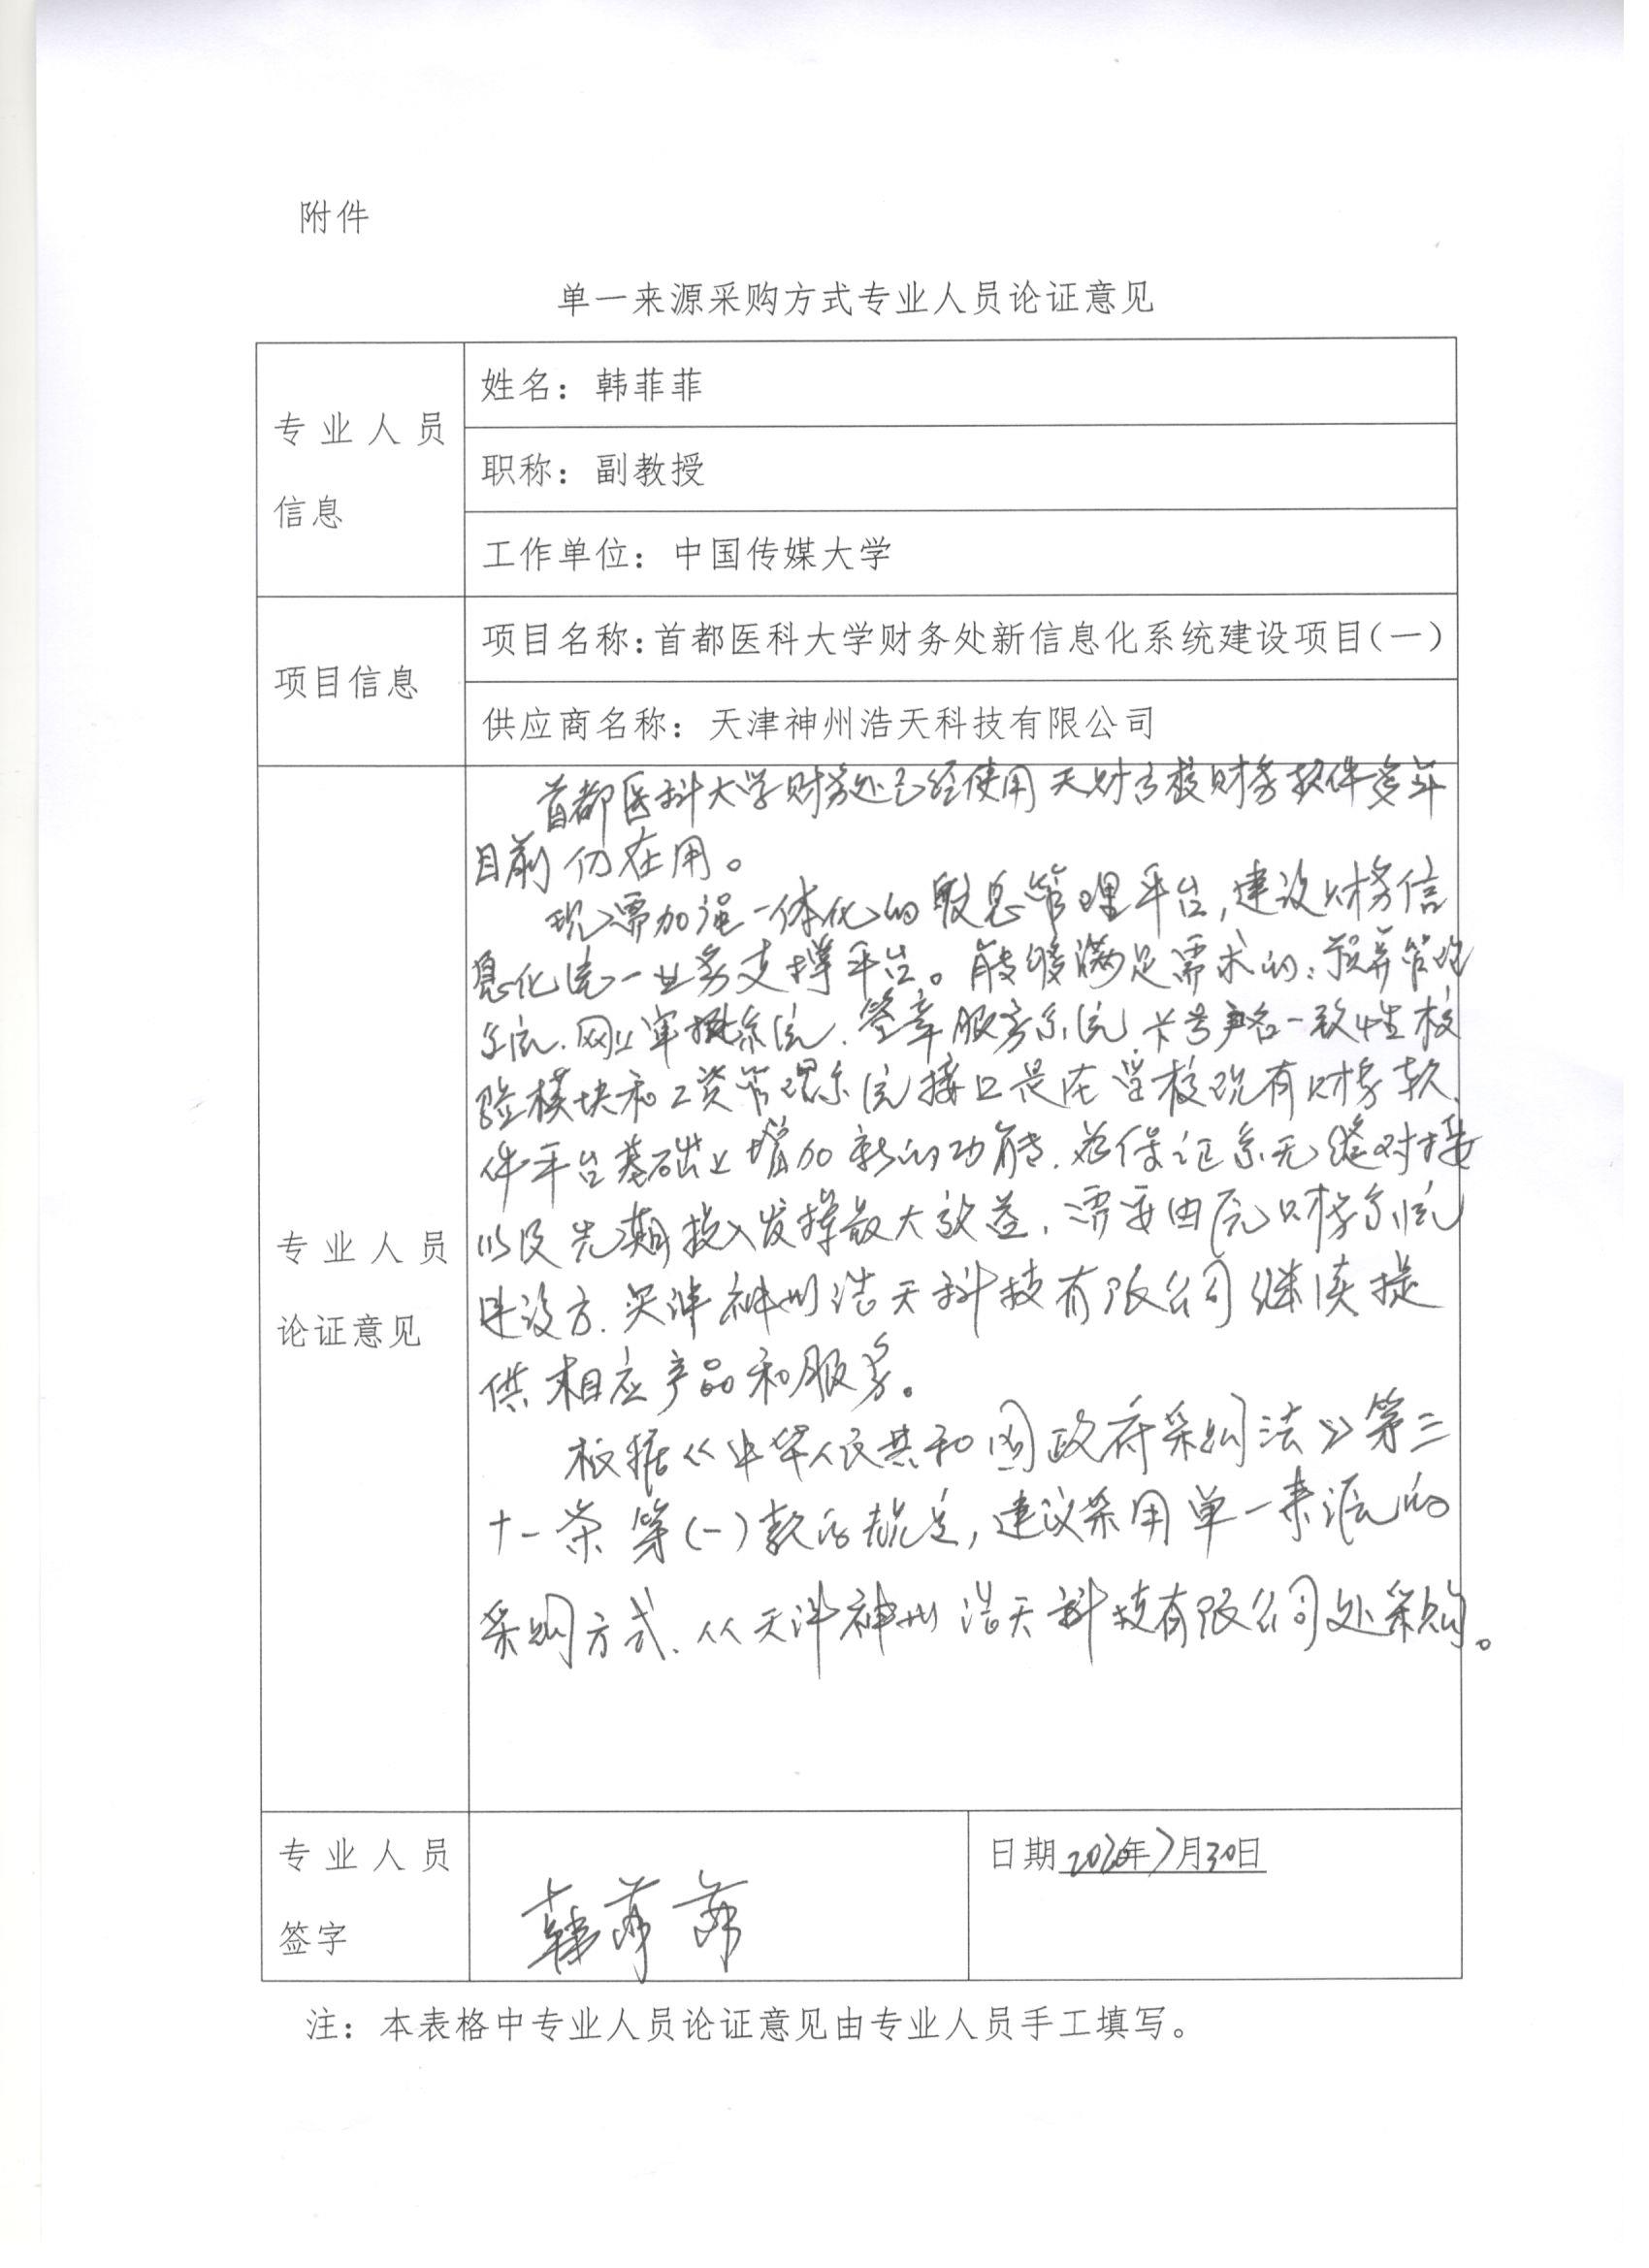 附件
单一来源采购方式专业人员论证意见
专业人员
信息
姓名：韩菲菲
职称：副教授
工作单位：中国传媒大学
项目信息
项目名称：首都医科大学财务处新信息化系统建设项目（一）
供应商名称：天津神州浩天科技有限公司
专业人员
论证意见
首都医科大学财务处已经使用天财高校财务软件多年
目前仍在用。
现需加强一体化的数息管理平台，建设财务信
息化统一业务支撑平台。能够满足需求的：预算管理
系统、网上审批系统、签章服务系统、卡号户名一致性校
验模块和工资管理系统接口是在学校现有财务软
件平台基础上增加新的功能。为保证系无缝对接
以及先期投入发挥最大效益，需要由原财务系统
建设方、天津神州浩天科技有限公司继续提
供相应产品和服务。
根据《中华人民共和国政府采购法》第三
十一条第（一）款的规定，建议采用单一来源的
采购方式、从天津神州浩天科技有限公司处采购。
专业人员
签字
韩菲菲
日期2020年7月30日
注：本表格中专业人员论证意见由专业人员手工填写。